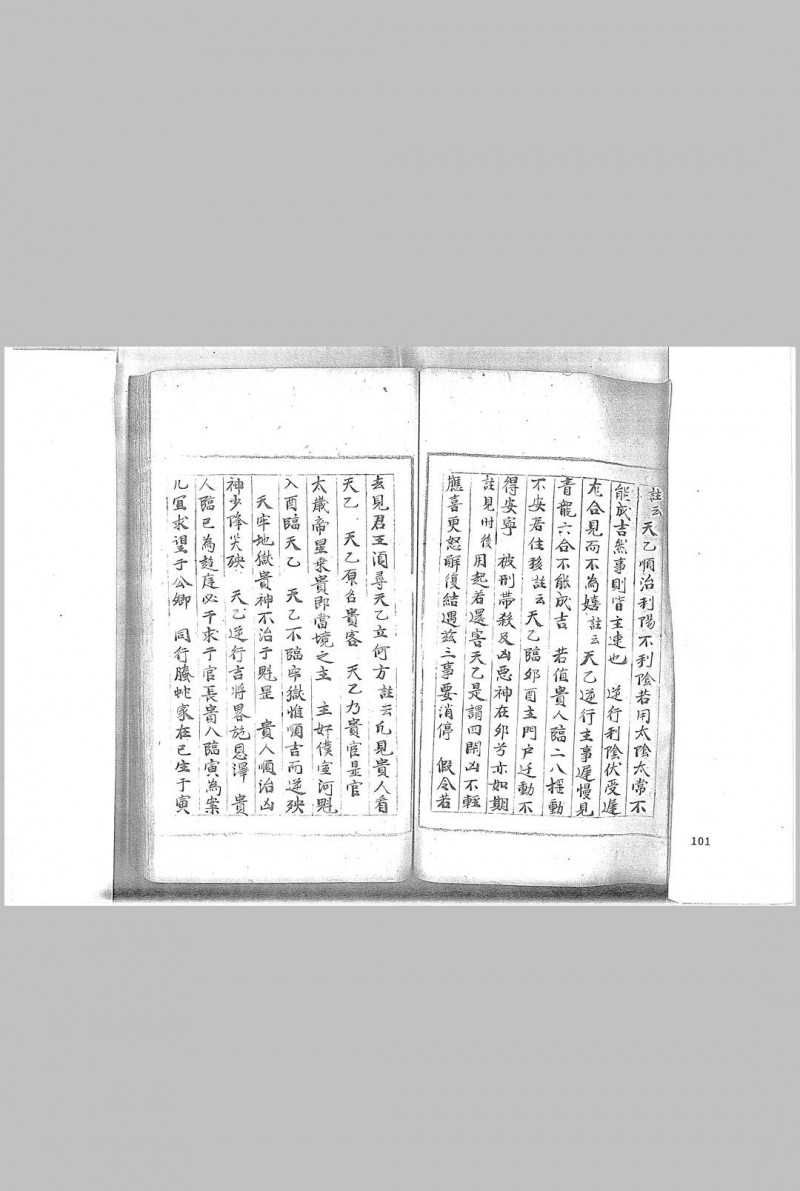 註云天乙順治利陽不利陰若用太陰太常不
能成吉然事則皆主速也 逆行利陰伏受遲
尨合見而不為嬉註云天乙逆行主事遲慢見
青龍六合不能成吉 若值貴人臨二八搖動
不安居住移註云天乙臨夘酉主門戸迁動不
得安寧 被刑帶殺及凶惡神在夘兮亦如期
註見時後用起若還害天乙是謂四閉凶不輕
應喜更怒解復結遇玆三事要消停 假令若
去見君王須尋天乙立何方註云凢見貴人看
天乙 天乙原名貴客 天乙乃貴官是官
太歲帝星来貴即當境之主 主奸僕宣河魁
入酉臨天乙 天乙不臨牢獄惟順吉而逆殃
天牢地獄貴神不治于魁罡 貴人順治凶
神少降災殃 天乙逆行吉將畧施恩澤 貴
人臨巳為趍庭必干求于官長貴人臨寅為案
几宜求望于公卿 同行螣虵家在巳生于寅
101